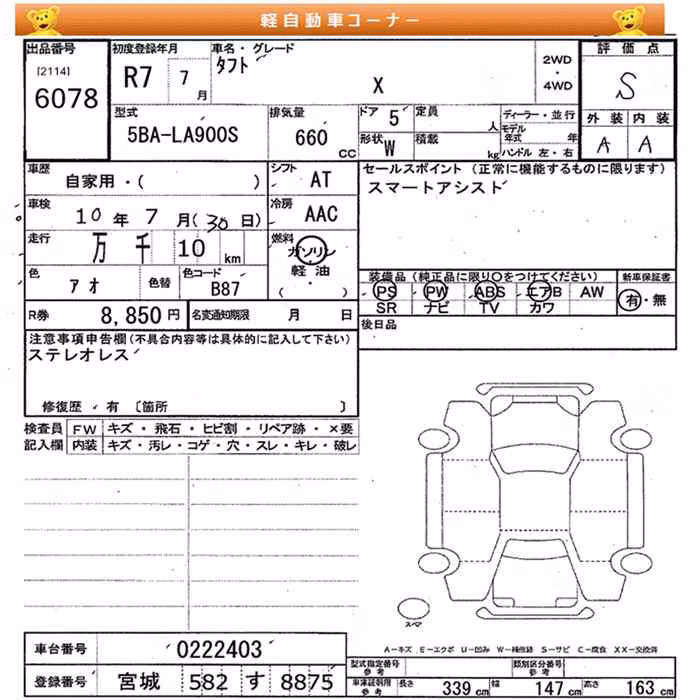 軽自動車コーナー
出品番号
[2114]
6078
初度登録年月
R7 7月
車名・グレード
タフト
X
2WD
・
4WD
評価点
S
外装 内装
A A
型式
5BA-LA900S
排気量
660 CC
ドア 5
形状 W
定員 人
積載 kg
ディーラー・並行
モデル年式 年
ハンドル 左・右
車歴
自家用・( )
シフト
AT
車検
10年 7月(30日)
冷房
AAC
走行
万 千 10 km
燃料
ガソリン
・
軽油
・
( )
色
アオ
色替
色コード
B87
R券 8,850円
名変通知期限 月 日
セールスポイント (正常に機能するものに限ります)
スマートアシスト
装備品(純正品に限り○をつけてください)
PS PW ABS エアB AW
SR ナビ TV カワ
新車保証書
有・無
後日品
注意事項申告欄(不具合内容等は具体的に記入して下さい)
ステレオレス
修復歴・有 〔箇所 〕
検査員記入欄
FW キズ・飛石・ヒビ割・リペア跡・×要
内装 キズ・汚レ・コゲ・穴・スレ・キレ・破レ
スペア
A-キズ E-エクボ U-凹み W-補修跡 S-サビ C-腐食 XX-交換済
車台番号 0222403
登録番号 宮城 582 す 8875
型式指定番号 参考
類別区分番号 参考
車庫証明用 参考
長さ 339 cm 幅 147 cm 高さ 163 cm